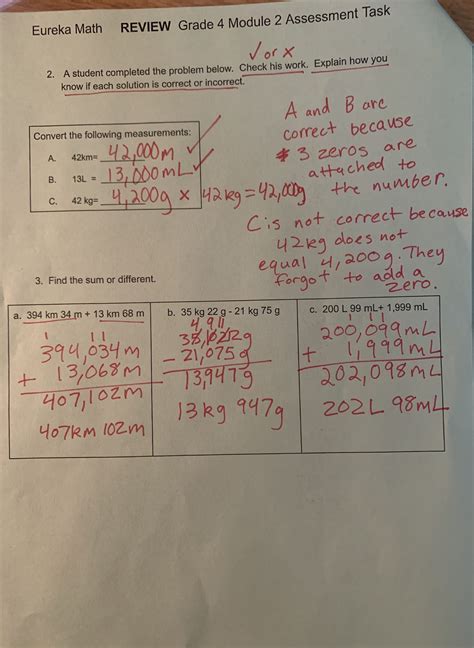 Eureka Math REVIEW Grade 4 Module 2 Assessment Task
✓ or X
2. A student completed the problem below. Check his work. Explain how you
know if each solution is correct or incorrect.
Convert the following measurements:
A. 42km= 42,000m ✓
B. 13L = 13,000mL ✓
C. 42 kg= 4,200g X 42kg=42,000g
A and B are
correct because
3 zeros are
attached to
the number.
C is not correct because
42kg does not
equal 4,200g. They
forgot to add a
zero.
3. Find the sum or different.
a. 394 km 34 m + 13 km 68 m
1 1 1
394,034m
+ 13,068m
407,102m
407km 102m
b. 35 kg 22 g - 21 kg 75 g
4 9 11
- 21,075g
13,947g
13kg 947g
c. 200 L 99 mL+ 1,999 mL
1 1
200,099mL
+ 1,999mL
202,098mL
202L 98mL